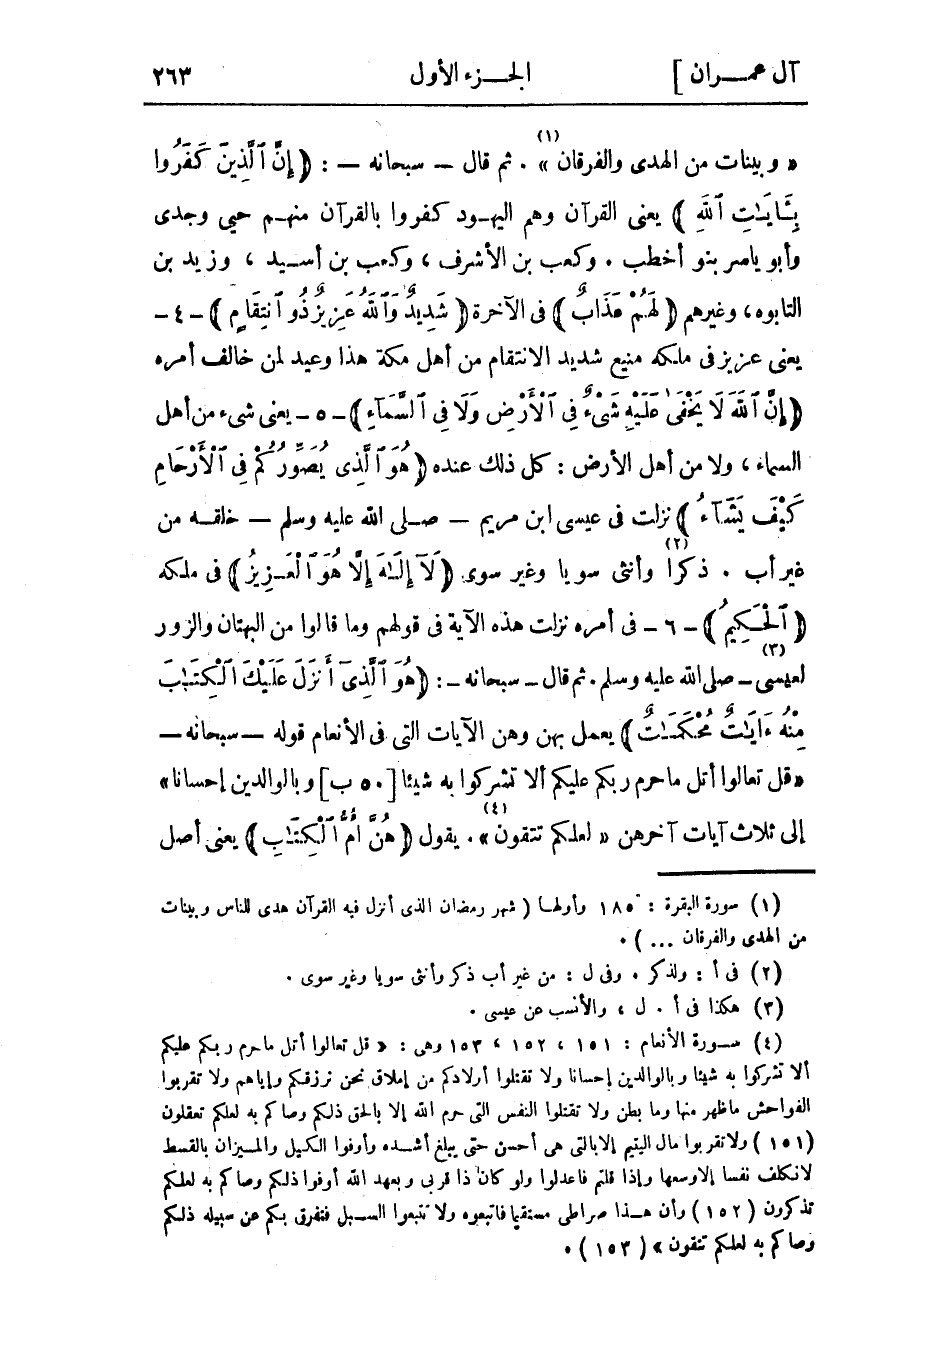 آل عمـــران ]
الجـــزء الأول
٢٦٣
« وبينات من الهدى والفرقان (١) » . ثم قال — سبحانه — : ﴿ إِنَّ ٱلَّذِينَ كَفَرُوا
بِـَٔايَـٰتِ ٱللَّهِ ﴾ يعنى القرآن وهم اليهـود كفروا بالقرآن منهـم حيى وجدى
وأبو ياسر بنو أخطب . وكعب بن الأشرف ، وكعب بن أسـيد ، وزيد بن
التابوه، وغيرهم ﴿ لَهُمْ عَذَابٌ ﴾ فى الآخرة ﴿ شَدِيدٌ وَٱللَّهُ عَزِيزٌ ذُو ٱنتِقَامٍ ﴾ — ٤ —
يعنى عزيز فى ملكه منيع شديد الانتقام من أهل مكة هذا وعيد لمن خالف أمره
﴿ إِنَّ ٱللَّهَ لَا يَخْفَىٰ عَلَيْهِ شَىْءٌ فِى ٱلْأَرْضِ وَلَا فِى ٱلسَّمَآءِ ﴾ — ٥ — يعنى شىء من أهل
السماء ، ولا من أهل الأرض : كل ذلك عنده ﴿ هُوَ ٱلَّذِى يُصَوِّرُكُمْ فِى ٱلْأَرْحَامِ
كَيْفَ يَشَآءُ ﴾ نزلت فى عيسى ابن مريم — صـلى الله عليه وسلم — خلقـه من
غير أب . ذكرا (٢) وأنثى سويا وغير سوى ﴿ لَآ إِلَـٰهَ إِلَّا هُوَ ٱلْعَـزِيزُ ﴾ فى ملكه
﴿ ٱلْحَـكِيمُ ﴾ — ٦ — فى أمره نزلت هذه الآية فى قولهم وما قالوا من البهتان والزور
لعيسى (٣) — صلى الله عليه وسلم . ثم قال — سبحانه — : ﴿ هُوَ ٱلَّذِىٓ أَنزَلَ عَلَيْكَ ٱلْكِتَـٰبَ
مِنْهُ ءَايَـٰتٌ مُّحْكَمَـٰتٌ ﴾ يعمل بهن وهن الآيات التى فى الأنعام قوله — سبحانه —
« قل تعالوا أتل ما حرم ربكم عليكم ألا تشركوا به شيئا [ ٥٠ ب ] وبالوالدين إحسانا »
إلى ثلاث آيات آخرهن « لعلكم تتقون (٤) » . يقول ﴿ هُنَّ أُمُّ ٱلْكِتَـٰبِ ﴾ يعنى أصل
(١) سورة البقرة : ١٨٥ وأولهـا ( شهر رمضان الذى أنزل فيه القرآن هدى للناس وبينات
من الهدى والفرقان ... ) .
(٢) فى أ : ولذكر . وفى ل : من غير أب ذكر وأنثى سويا وغير سوى .
(٣) هكذا فى أ . ل ، والأنسب عن عيسى .
(٤) سـورة الأنعام : ١٥١ ، ١٥٢ ، ١٥٣ وهى : « قل تعالوا أتل ما حرم ربكم عليكم
ألا تشركوا به شيئا وبالوالدين إحسانا ولا تقتلوا أولادكم من إملاق نحن نرزقكم وإياهم ولا تقربوا
الفواحش ما ظهر منها وما بطن ولا تقتلوا النفس التى حرم الله إلا بالحق ذلكم وصاكم به لعلكم تعقلون
( ١٥١ ) ولا تقربوا مال اليتيم إلا بالتى هى أحسن حتى يبلغ أشـده وأوفوا الكيل والمـيزان بالقسط
لا نكلف نفسا إلا وسعها وإذا قلتم فاعدلوا ولو كان ذا قربى وبعهد الله أوفوا ذلكم وصاكم به لعلكم
تذكرون ( ١٥٢ ) وأن هـذا صراطى مستقيما فاتبعوه ولا تتبعوا السـبل فتفرق بكم عن سبيله ذلكم
وصاكم به لعلكم تتقون » ( ١٥٣ ) .